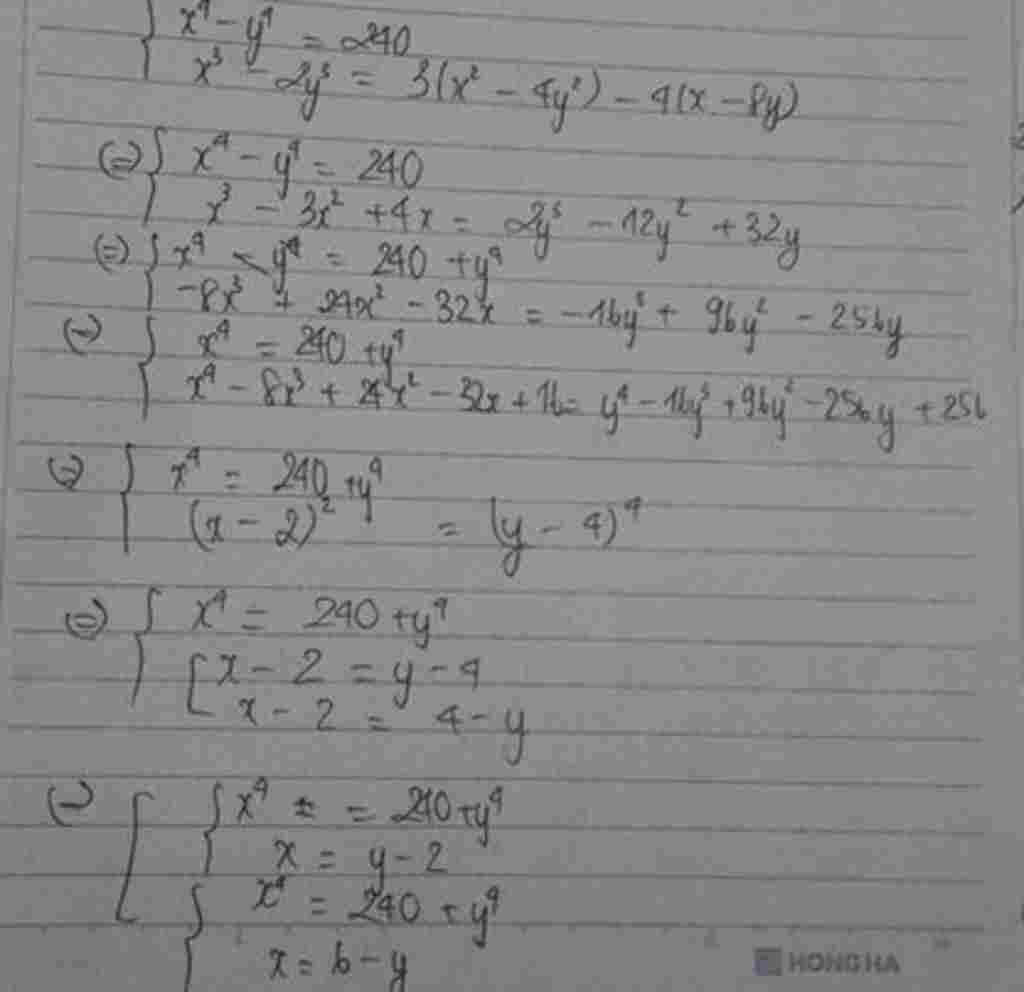 x⁴ - y⁴ = 240
x³ - 2y³ = 3(x² - 4y²) - 4(x - 8y)
(=) x⁴ - y⁴ = 240
x³ - 3x² + 4x = 2y³ - 12y² + 32y
(=) x⁴ - y⁴ = 240 + y⁴
-8x³ + 24x² - 32x = -16y³ + 96y² - 256y
(=) x⁴ = 240 + y⁴
x⁴ - 8x³ + 24x² - 32x + 16 = y⁴ - 16y³ + 96y² - 256y + 256
(=) x⁴ = 240 + y⁴
(x - 2)² = (y - 4)⁴
(=) x⁴ = 240 + y⁴
x - 2 = y - 4
x - 2 = 4 - y
(=) x⁴ ± = 240 + y⁴
x = y - 2
x⁴ = 240 + y⁴
x = 6 - y
HONG HA